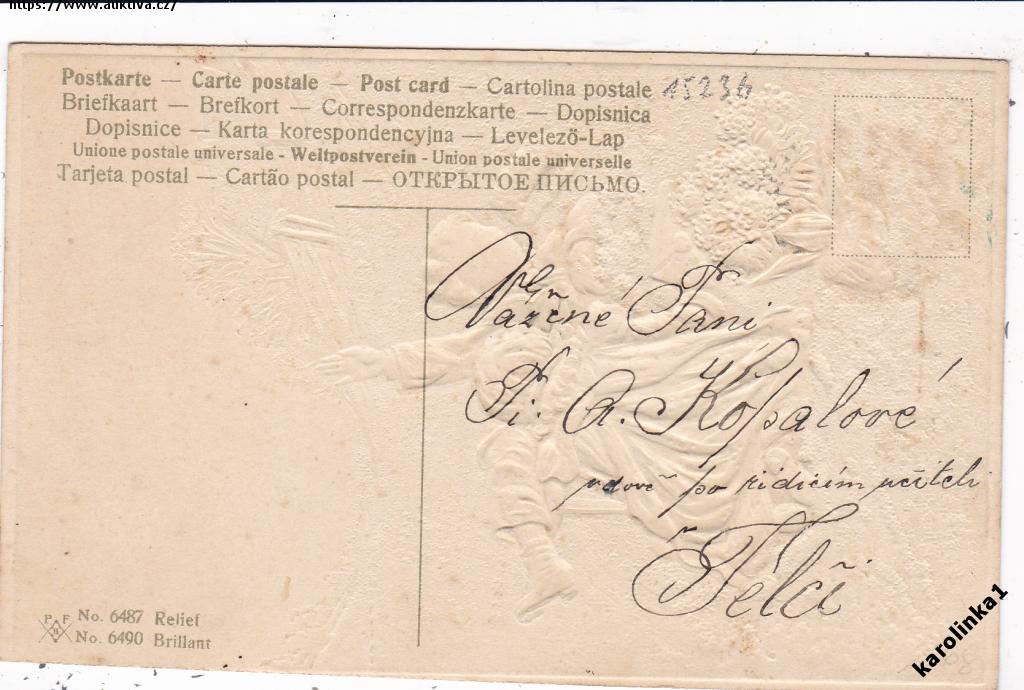 https://www.auktiva.cz/
Postkarte — Carte postale — Post card — Cartolina postale 15234
Briefkaart — Brefkort — Correspondenzkarte — Dopisnica
Dopisnice — Karta korespondencyjna — Levelező-Lap
Unione postale universale - Weltpostverein - Union postale universelle
Tarjeta postal — Cartão postal — ОТКРЫТОЕ ПИСЬМО.
Vážené Paní
A. Kopsalové
vdově po řídícím učiteli
Telči
P F
B
No. 6487 Relief
No. 6490 Brillant
karolinka1